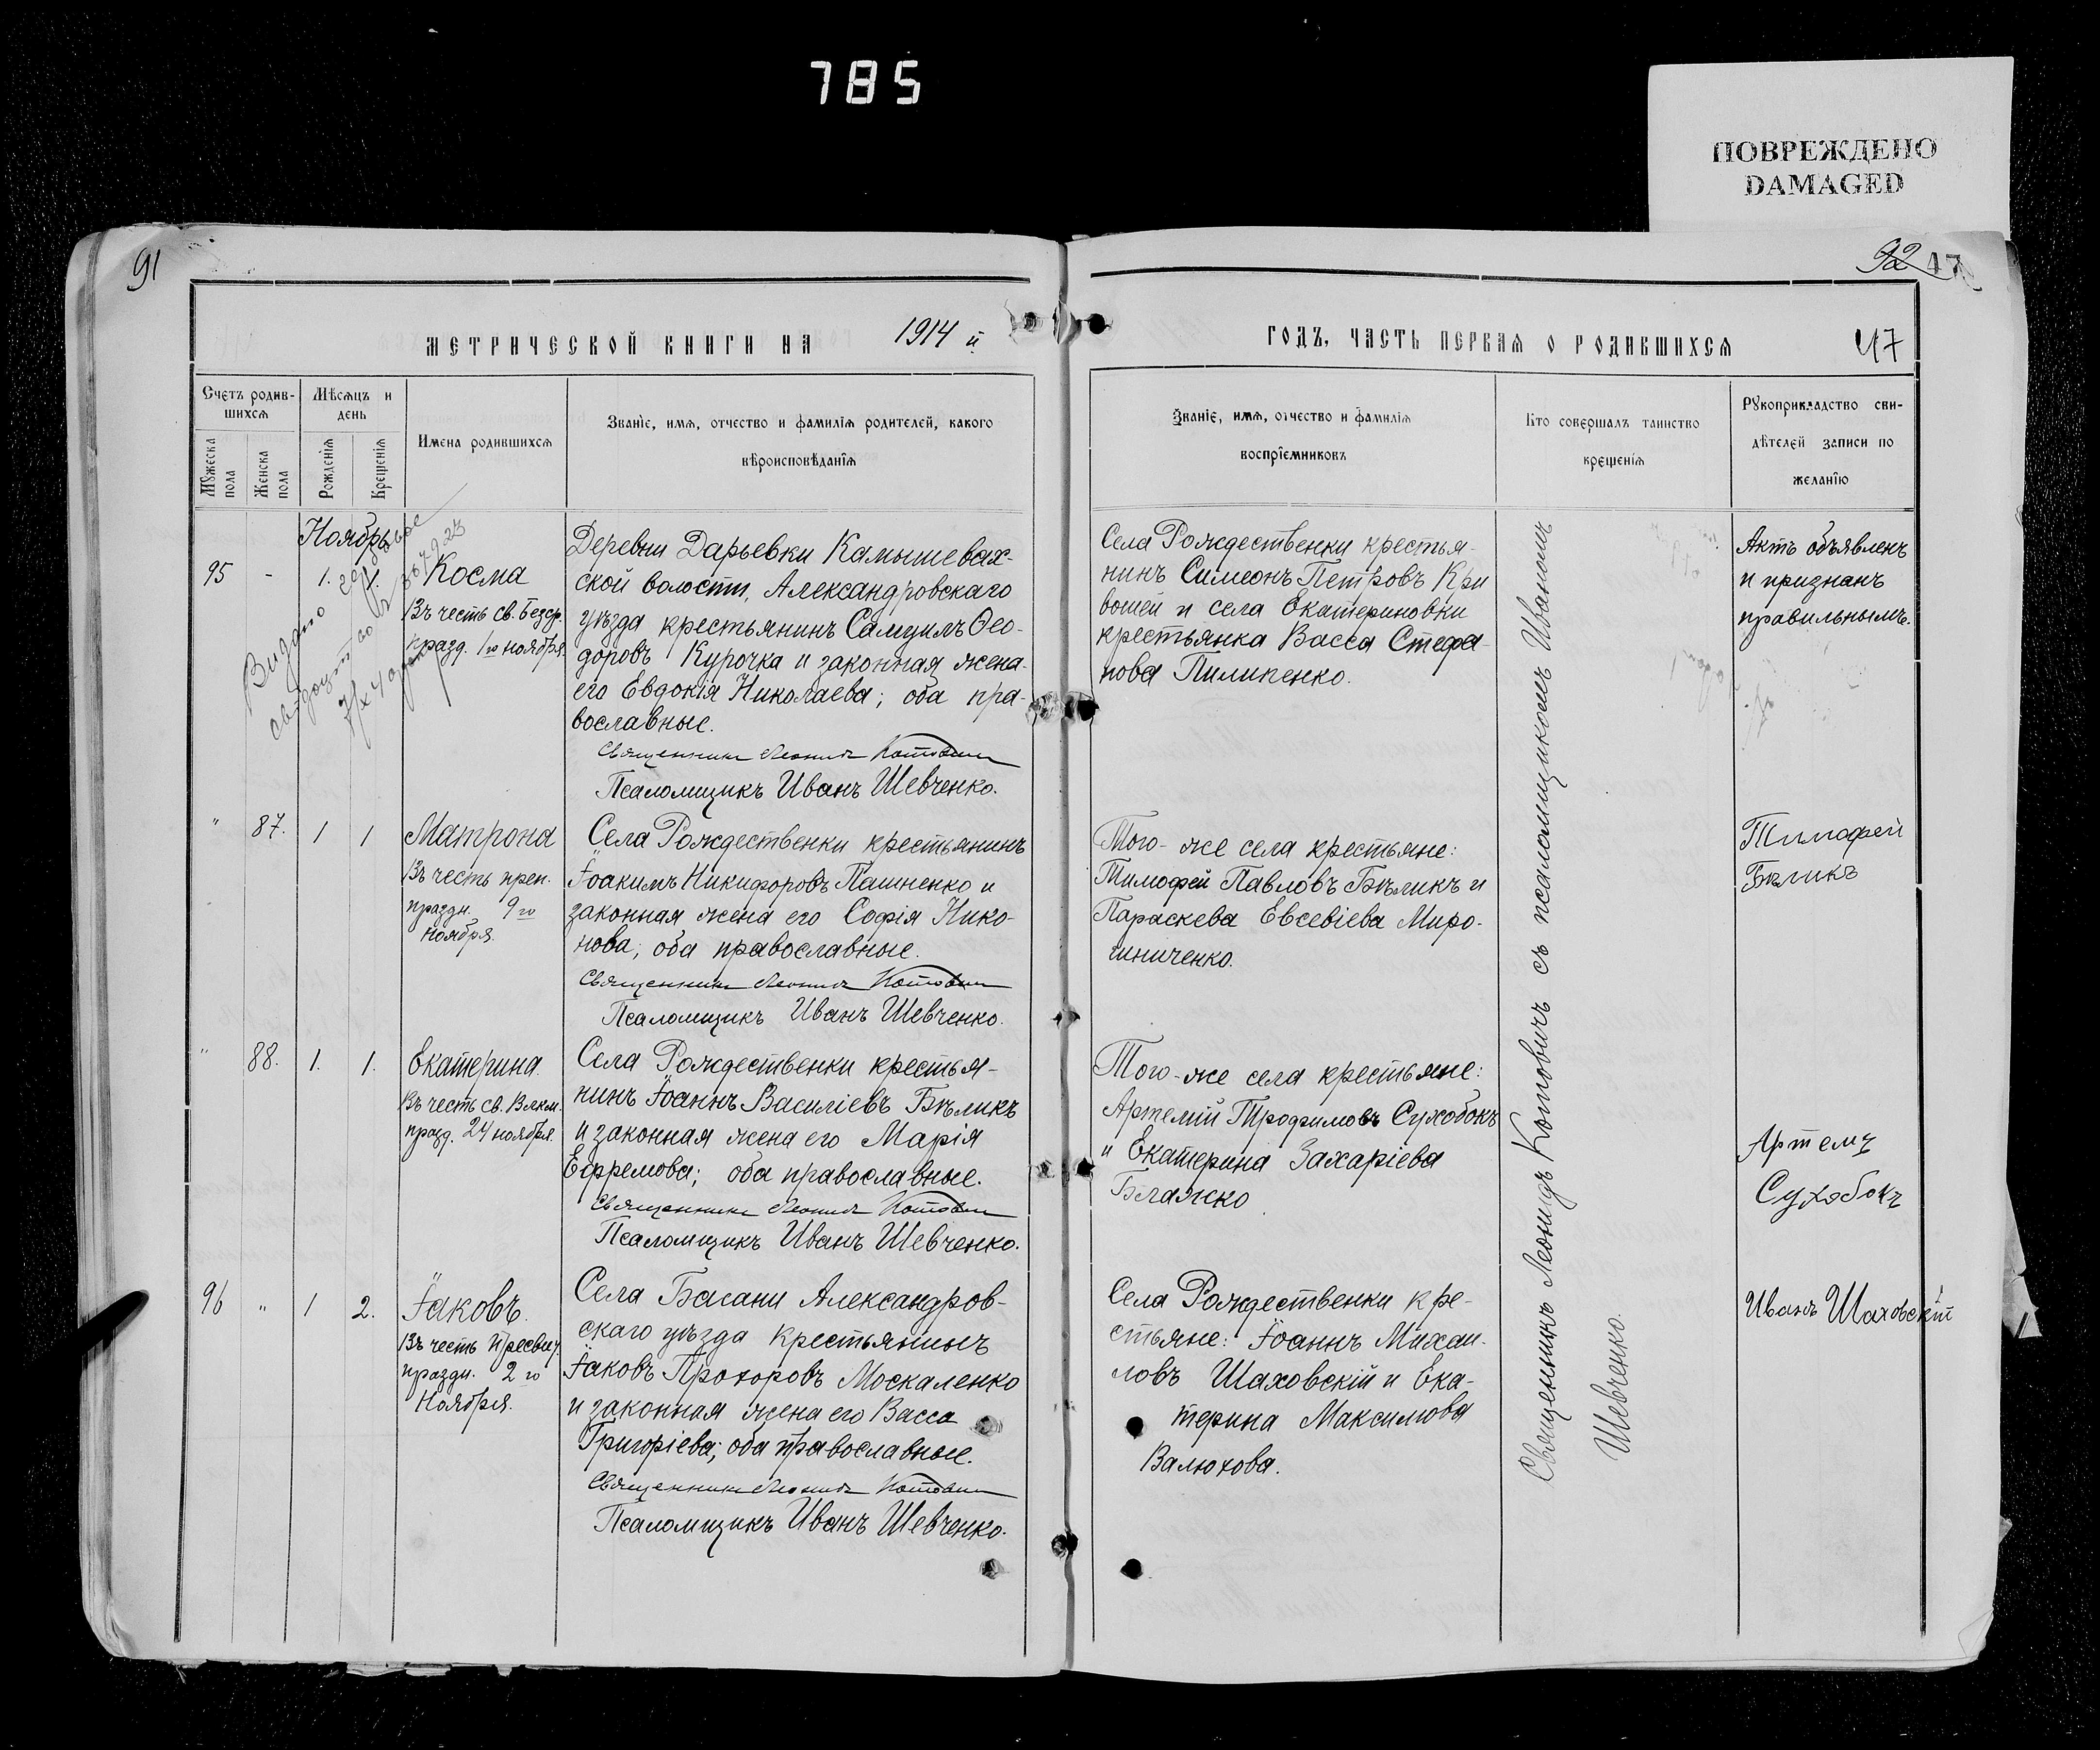 785
ПОВРЕЖДЕНО
DAMAGED
91
92 47
МЕТРИЧЕСКОЙ КНИГИ НА 1914 й
ГОДЪ, ЧАСТЬ ПЕРВАЯ О РОДИВШИХСЯ 47
Счетъ родив-
шихся
Мѣсяцъ и
день
Мужеска
пола
Женска
пола
Рожденія
Крещенія
Имена родившихся
Званіе, имя, отчество и фамилія родителей, какого
вѣроисповѣданія
Званіе, имя, отчество и фамилія
воспріемниковъ
Кто совершалъ таинство
крещенія
Рукоприкладство сви-
дѣтелей записи по
желанію
Ноябрь
95 - 1. 1.
Косма
Въ честь св. Безср.
празд. 1го ноября.
Видано
Деревни Дарьевки Камышевах-
ской волости, Александровскаго
уѣзда крестьянинъ Самуилъ Ѳео-
доровъ Курочка и законная жена
его Евдокія Николаева; оба пра-
вославные.
Священникъ Леонидъ Котовичъ
Псаломщикъ Иванъ Шевченко.
Села Рождественки крестья-
нинъ Симеонъ Петровъ Кри
вошей и села Екатериновки
крестьянка Васса Стефа-
нова Пилипенко.
Актъ объявленъ
и признанъ
правильнымъ.
" 87. 1 1
Матрона
Въ честь преп.
праздн. 9го
ноября.
Села Рождественки крестьянинъ
Іоакимъ Никифоровъ Пашненко и
законная жена его Софія Нико-
нова; оба православные.
Священникъ Леонидъ Котовичъ
Псаломщикъ Иванъ Шевченко.
Того-же села крестьяне:
Тимофей Павловъ Бѣликъ и
Параскева Евсевіева Миро-
шниченко.
Тимофей
Бѣликъ
" 88. 1. 1.
Екатерина.
Въ честь св. Влкм.
празд. 24 ноября.
Села Рождественки крестья-
нинъ Іоаннъ Василіевъ Бѣликъ
и законная жена его Марія
Ефремова; оба православные.
Священникъ Леонидъ Котовичъ
Псаломщикъ Иванъ Шевченко.
Того-же села крестьяне:
Артемій Трофимовъ Сухобокъ
и Екатерина Захаріева
Блажко
Артемъ
Сухобокъ
96 " 1 2.
Іаковъ.
Въ честь
праздн. 2го
Ноября.
Села Басани Александров-
скаго уѣзда крестьянинъ
Іаковъ Прохоровъ Москаленко
и законная жена его Васса
Григоріева; оба православные.
Священникъ Леонидъ Котовичъ
Псаломщикъ Иванъ Шевченко.
Села Рождественки кре-
стьяне: Іоаннъ Михаи-
ловъ Шаховскій и Ека-
терина Максимова
Валюхова.
Иванъ Шаховскій
Священникъ Леонидъ Котовичъ съ псаломщикомъ Иваномъ
Шевченко.